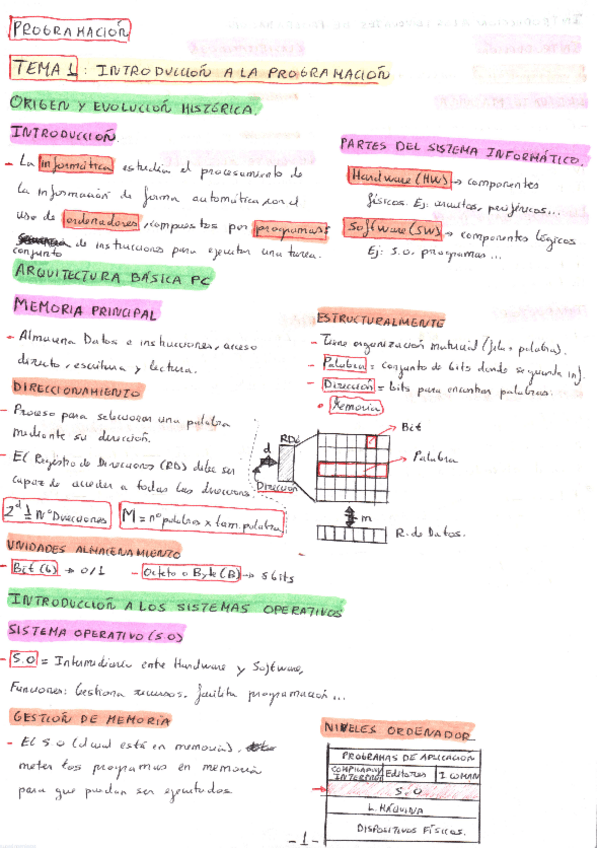 PROGRAMACIÓN
TEMA 1: INTRODUCCIÓN A LA PROGRAMACIÓN
ORIGEN Y EVOLUCIÓN HISTÓRICA.
INTRODUCCIÓN.
- La informática estudia el procesamiento de
la información de forma automática por el
uso de ordenadores, compuestos por programas
conjunto de instrucciones para ejecutar una tarea.
PARTES DEL SISTEMA INFORMÁTICO.
Hardware (HW) → componentes
físicos. Ej: circuitos, periféricos...
Software (SW) → componentes lógicos
Ej: S.O. programas...
ARQUITECTURA BÁSICA PC
MEMORIA PRINCIPAL
- Almacena Datos e instrucciones, acceso
directo, escritura y lectura.
DIRECCIONAMIENTO
- Proceso para seleccionar una palabra
mediante su dirección.
- El Registro de Direcciones (RD) debe ser
capaz de acceder a todas las direcciones.
Nº Direcciones
M = nº palabras x tam. palabra
ESTRUCTURALMENTE
- Tiene organización matricial (fila, palabra).
- Palabra = conjunto de bits donde se guarda inf.
- Dirección = bits para encontrar palabras.
• Memoria
Bit
RD
Palabra
d
Dirección
m
R. de Datos.
UNIDADES ALMACENAMIENTO
- Bit (b) → 0/1
- Octeto o Byte (B) → 8 bits
INTRODUCCIÓN A LOS SISTEMAS OPERATIVOS
SISTEMA OPERATIVO (S.O)
- S.O = Intermediario entre Hardware y Software,
Funciones: Gestiona recursos, facilita programación...
GESTIÓN DE MEMORIA
- El S.O (el cual está en memoria),
meter los programas en memoria
para que puedan ser ejecutados
NIVELES ORDENADOR
PROGRAMAS DE APLICACIÓN
Editores
S.O
L. MÁQUINA
DISPOSITIVOS FÍSICOS.
-1-